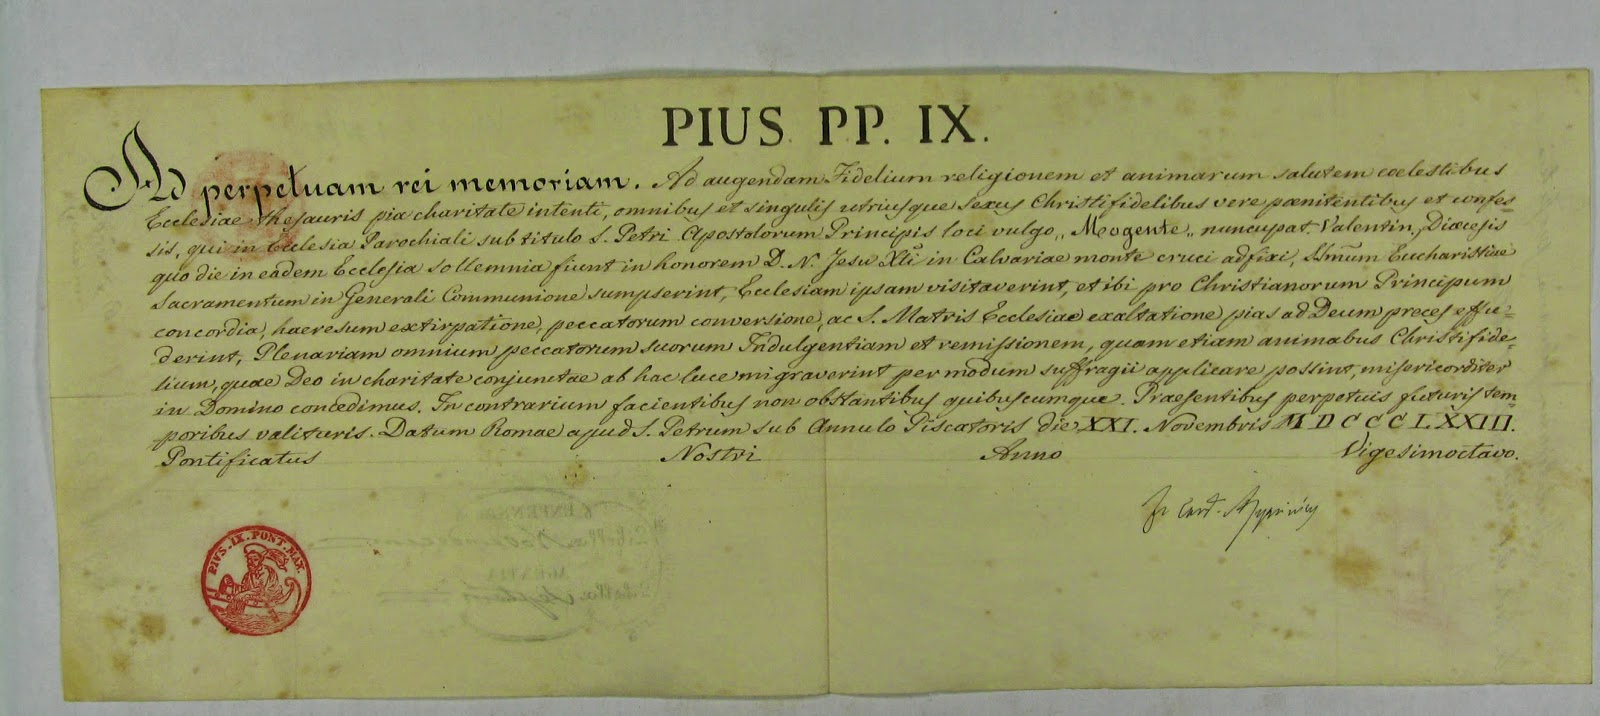 PIUS PP. IX.
Ad perpetuam rei memoriam. Ad augendam Fidelium religionem et animarum salutem coelestibus
Ecclesiae thesauris pia charitate intenti, omnibus et singulis utriusque Sexus Christifidelibus vere poenitentibus et confes=
sis, qui in Ecclesia Parochiali sub titulo S. Petri Apostolorum Principis loci vulgo „Mogente„ nuncupat. Valentin. Dioecesis
quo die in eadem Ecclesia sollemnia fiunt in honorem D. N. Jesu Xti in Calvariae monte cruci adfixi, SSmum Eucharistiae
Sacramentum in Generali Communione sumpserint, Ecclesiam ipsam visitaverint, et ibi pro Christianorum Principum
concordia, haeresum extirpatione, peccatorum conversione, ac S. Matris Ecclesiae exaltatione pias ad Deum preces effu=
derint, Plenariam omnium peccatorum suorum Indulgentiam et remissionem, quam etiam animabus Christifide=
lium, quae Deo in charitate conjunctae ab hac luce migraverint per modum suffragii applicare possint, misericorditer
in Domino concedimus. In contrarium facientibus non obstantibus quibuscumque. Praesentibus perpetuis futuris tem=
poribus valituris. Datum Romae apud S. Petrum sub Annulo Piscatoris die XXI. Novembris MDCCCLXXIII.
Pontificatus Nostri Anno Vigesimoctavo.
Card.
PIVS.IX.PONT.MAX.